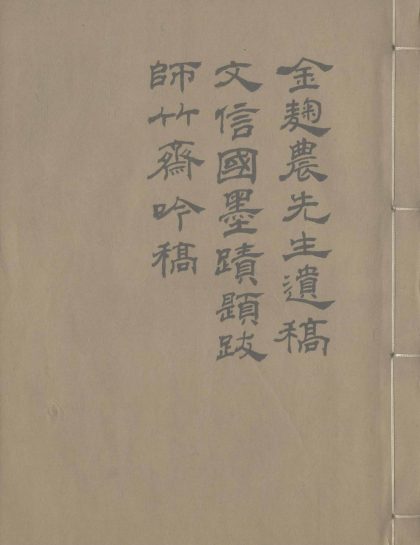 金麹農先生遺稿
文信國墨蹟題跋
師竹齋吟稿